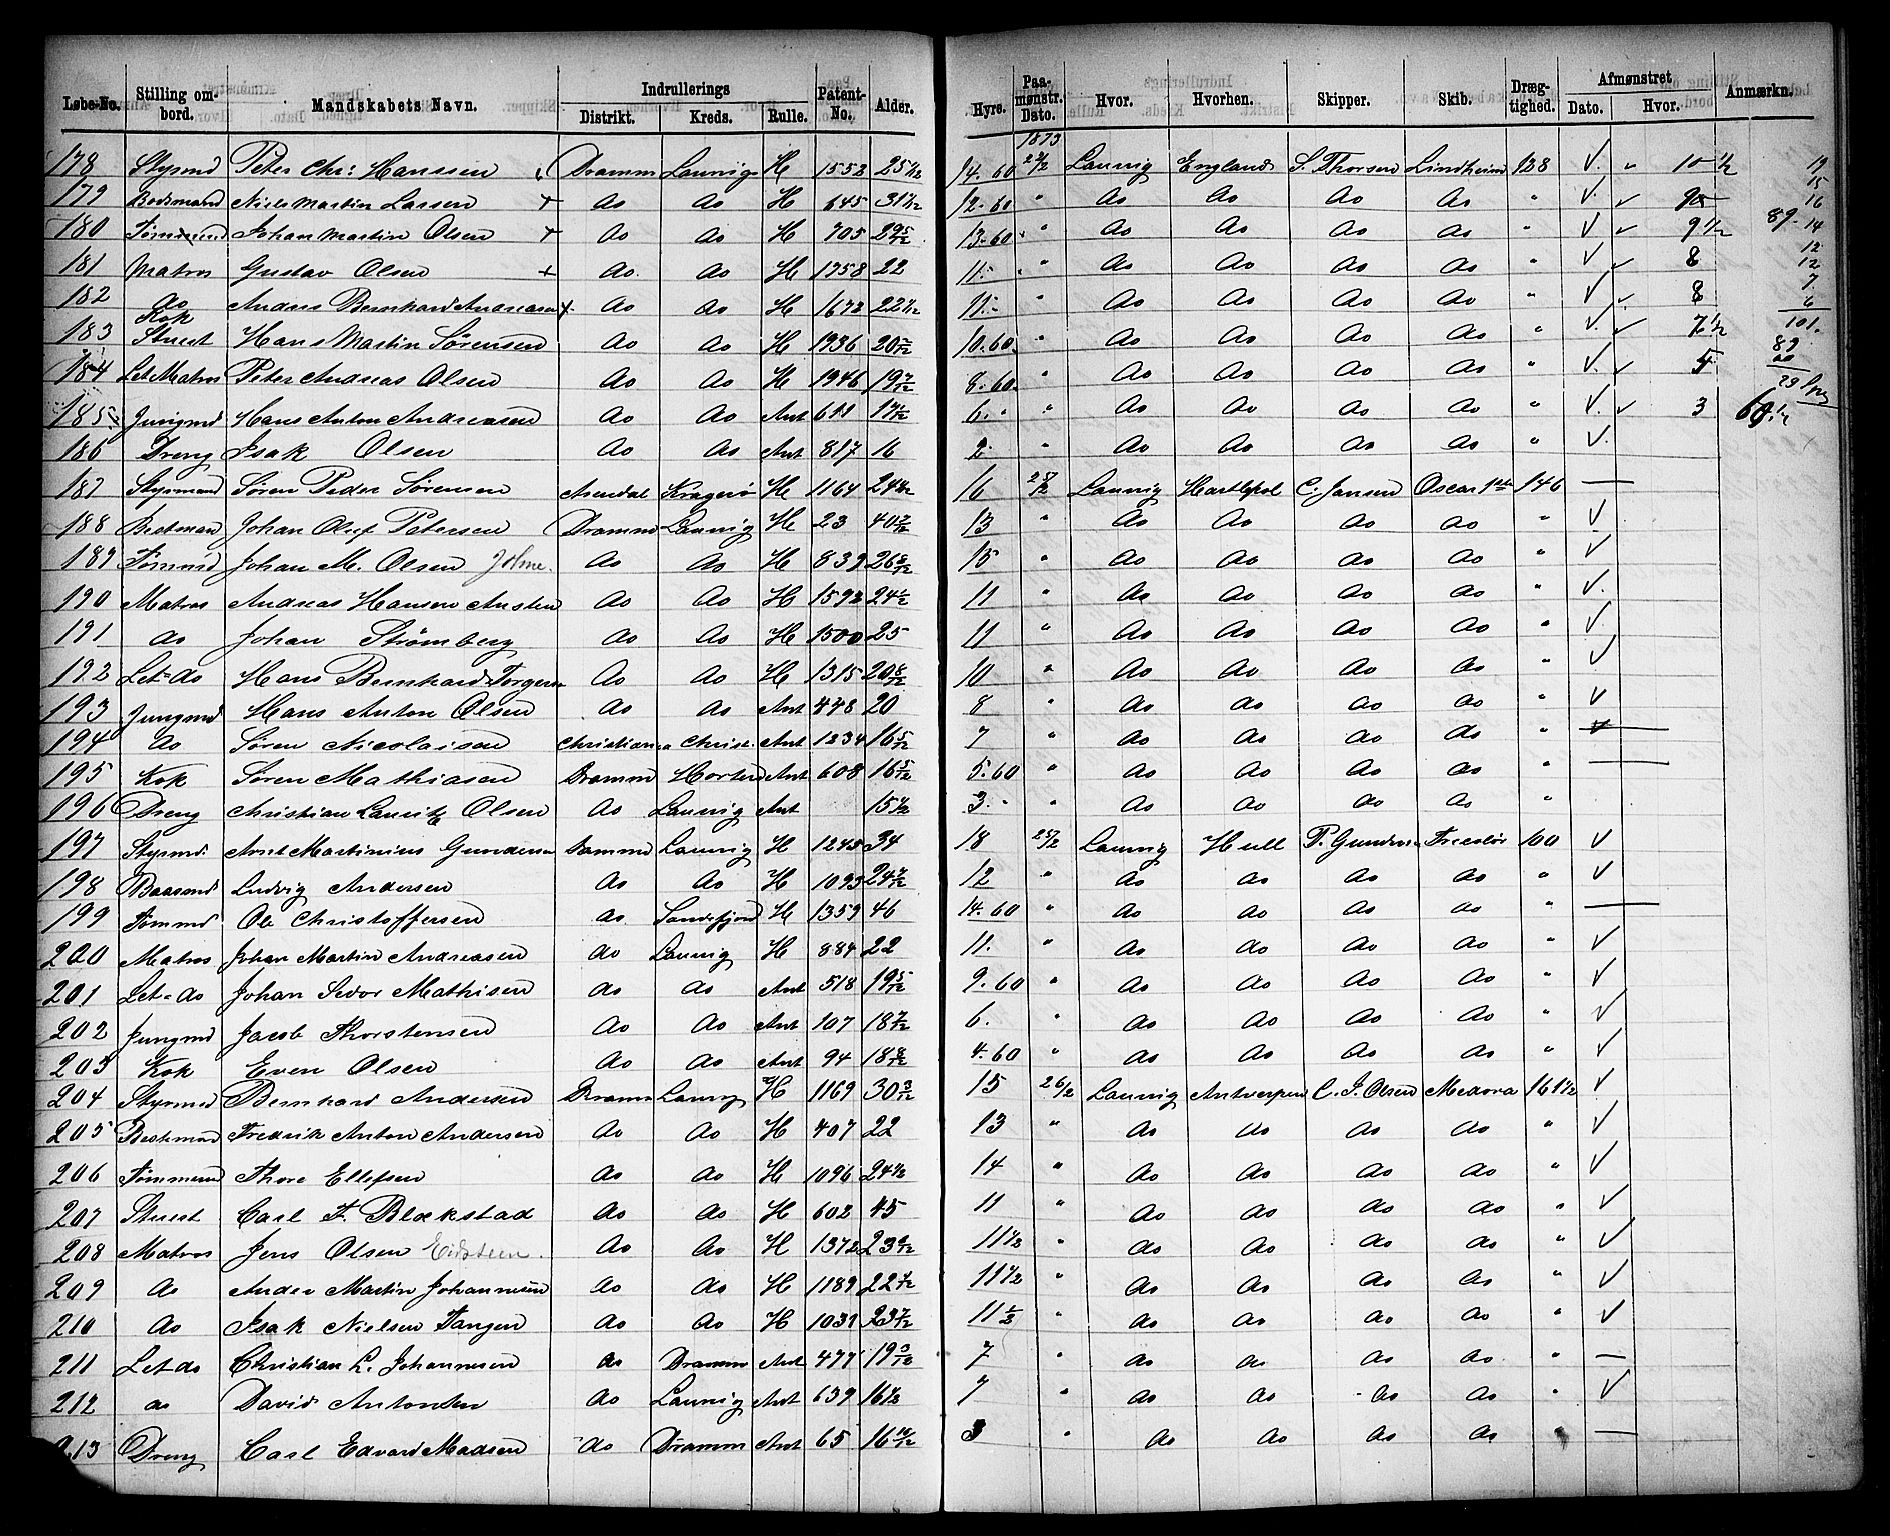 Løbe-No. | Stilling ombord. | Mandskabets Navn. | Indrullerings Distrikt. | Kreds. | Rulle. | Patent-No. | Alder. | Hyre. | Paamønstr. Dato. | Hvor. | Hvorhen. | Skipper. | Skib. | Drægtighed. | Afmønstret Dato. | Hvor. | Anmærkn.
1873
178 Styrmd Peter Chr: Hanssen Dramm Laurvig H 1552 25 1/2 14.60 Laurvig England S. Thorsen Lindheim 128 V. " 10 1/2 19
179 Bodsmand Niels Martin Larsen + do do H 645 31 1/12 12.60 " do do do do " V. ✓ 15
180 Tømmend Johan Martin Olsen + do do H 705 29 5/12 13.60 " do do do do " V ✓ 9 1/2 89 14
181 Matros Gustav Olsen + do. do H 1758 22 11.- " do do do do " V ✓ 8 12
182 do Anders Bernhard Andreasen + do do H 1673 22 1/12 11.- " do do do do " V ✓ 8 7
183 Kok Stuert Hans Martin Sørensen do do H 1936 20 10.60 " do do do do " V. ✓ 7 1/2 101.
184 Let Matros Peter Andreas Olsen do do H 1946 19 7/12 8.60 " do do do do " V. ✓ 5 89
185 Jungmd Hans Anton Andreasen do do Ant 611 6. " " do do do do " V. ✓ 3
186 Dreng Isak Olsen do do Ant 817 16 2. " do do do do " V.
187 Styrmand Søren Peder Sørensen Arendal Kragerø H 1164 24 16 Laurvig Hartlepol C. Jansen Oscar 1ste 146 —
188 Bestman Johan Olaf Petersen Dramm Laurvig H 23 40 13 " do do do do " V
189 Tømmd Johan M. Olsen Holme. do do H 839 26 8/12 15 " do do do do " V
190 Matros Andreas Hansen do do H 1592 24 11 " do do do do " V.
191 do Johan Strømberg do do H 1500 25 11 " do do do do " V.
192 Let-do Hans Bernhard Torgersen do do H 1315 20 8/12 10 " do do do do " V
193 Jungmd Hans Anton Olsen do do Ant 448 20 8 " do do do do " V
194 do Søren Nicolaisen Christiania Christ. Ant 1234 16 5/12 7 " do do do do " —
195 Kok Søren Mathiasen Dramm Horten Ant 608 16 5/12 5.60 " do do do do " —
196 Dreng Christian Lauritz Olsen do Laurvig Ant 15 1/2 3. " " do do do do "
197 Styrmd. Anst Martinius Gundersen Dammd Laurvig H 1245 34 18 25/2 Laurvig Hull P. Gundersen Tricolør 100 V
198 Baasmd Ludvig Andersen do do H 1093 24 7/12 12 " do do do do " V
199 Tømmd Ole Christoffersen do Sandefjord H 1359 46 14.60 " do do do do " —
200 Matros Johan Martin Andreasen do Laurvig H 884 22 11. " do do do do " V
201 Let-do Johan Sivor Mathisen do do Ant 518 19 5/12 9.60 " do do do do " V
202 Jungmd Jacob Thorstensen do do Ant 107 18 7/12 6. " do do do do " V
203 Kok Even Olsen do do Ant 94 18 8/12 4.60 " do do do do " V
204 Styrmd Bernhard Andersen Dramm Laurvig H 1169 30 3/12 15 26/2 Laurvig Antwerpen C. J. Olsen Medora 161 1/2 V
205 Bestmand Fredrik Anton Andersen do do H 407 22 13 " do do do do " V
206 Tømmend Thore Ellefsen do do H 1096 24 1/2 14 " do do do do " V
207 Stuert Carl F. Blekstad do do H 602 45 11 " do do do do " V
208 Matros Jens Olsen Eidsteen. do do H 1372 23 11 1/2 " do do do do " V
209 do Anders Martin Johannesen do do H 1189 22 11 1/2 " do do do do " V
210 do Isak Nielsen Tangen do do H 1031 23 7/12 11 1/2 " do do do do " V
211 Let do Christian L. Johannesen do Dramm Ant 477 19 3/12 7 " do do do do " —
212 do David Antonsen do Laurvig Ant 639 16 1/2 7 " do do do do " V
213 Dreng Carl Edvard Madsen do Dramm Ant 65 16 10/12 3 " do do do do —